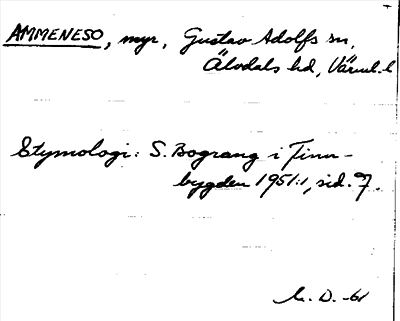 AMMENESO, myr, Gustav Adolfs sn,
Älvdals hd, Värml. l
Etymologi: S. Bograng i Finn-
bygden 1951:1, sid. 7.
M. D. -61